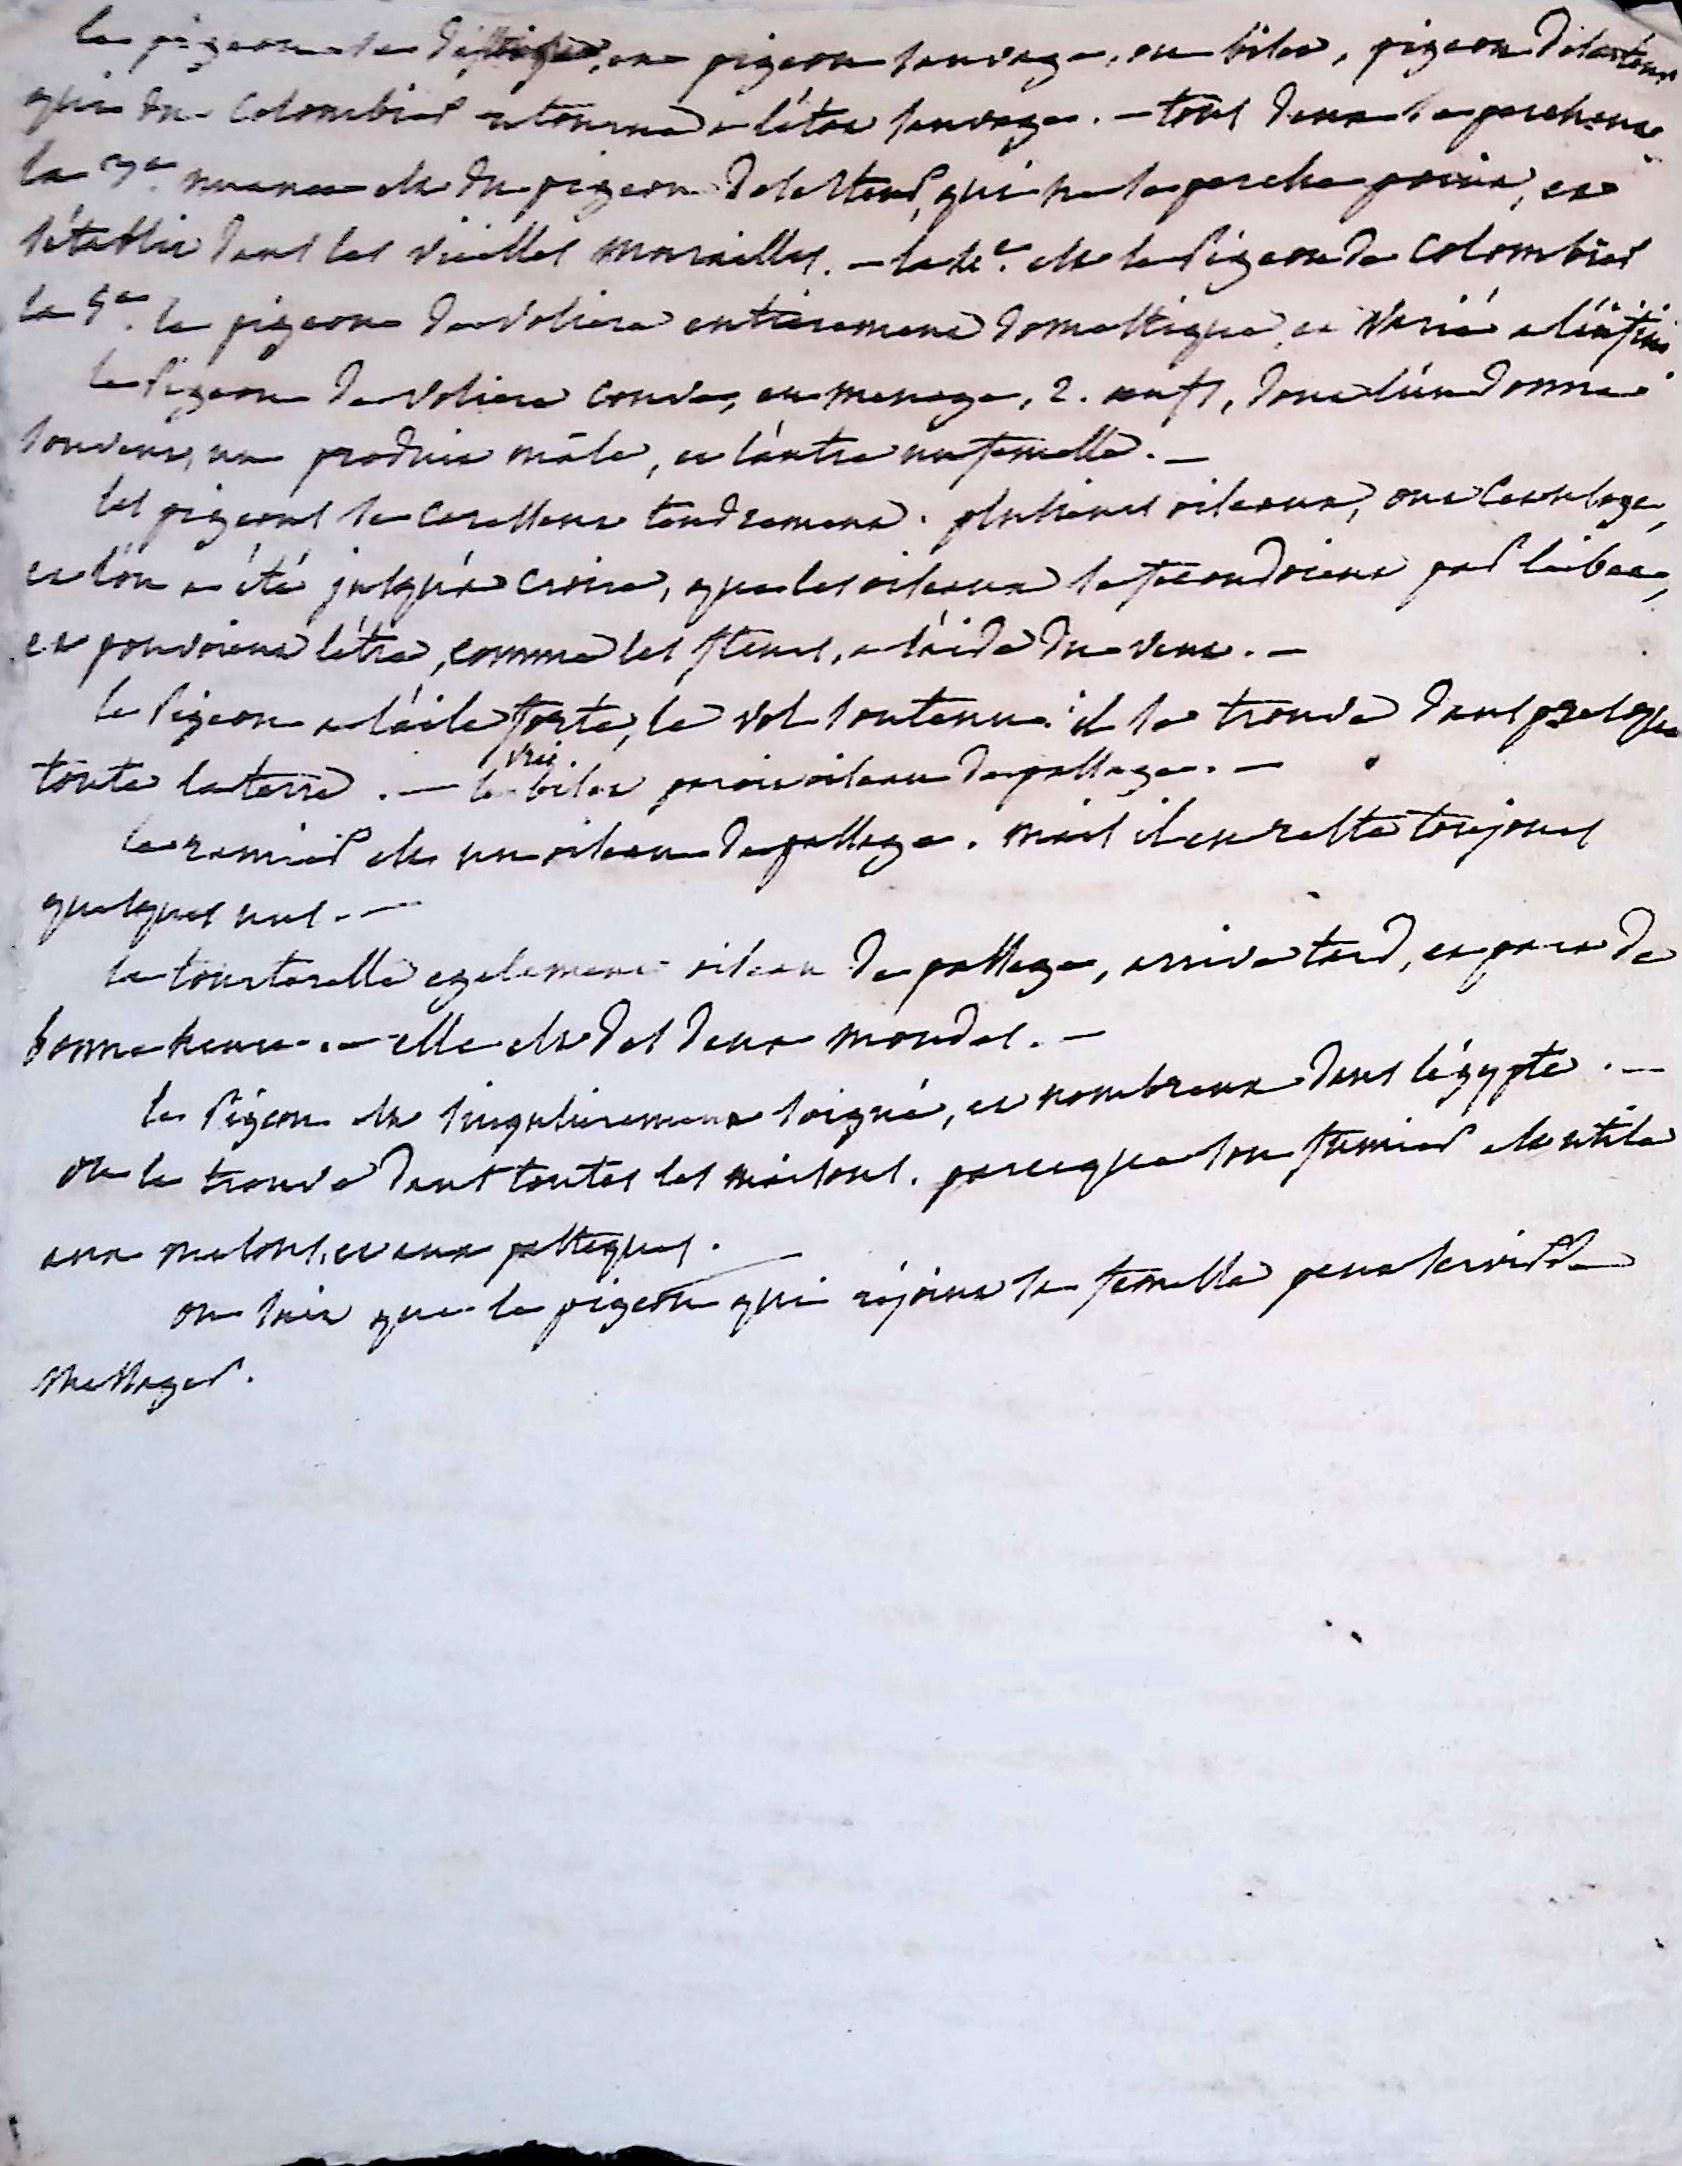 le pigeon se distingue, en pigeon sauvage, ou biset, pigeon déserteur
qui du Colombier retourne a l'état sauvage. – tous deux se perchent
la 3e. nuance est du pigeon déserteur, qui ne se perche point, et
s'établit dans les vieilles murailles. – la 4e. est le Pigeon de Colombier
la 5e. le pigeon de voliere entierement domestique, et varié a l'infini
le Pigeon de voliere couve, en menage, 2. œufs, dont l'un donne
souvent, un produit mâle, et l'autre un femelle. –
les pigeons se caressent tendrement. plusieurs oiseaux, ont cet usage,
et l'on a été jusqu'à croire, que les oiseaux se fecondoient par le bec,
et pouvoient l'être, comme les fleurs, a l'aide du vent. –
le Pigeon a l'aile forte, le vol soutenu. il se trouve dans presque
toute la terre. – le vrai biset paroit oiseau de passage. –
le ramier est un oiseau de passage. mais il en reste toujours
quelques uns. –
la tourterelle egalement oiseau de passage, arrive tard, et part de
bonne heure. – elle est des deux mondes. –
le Pigeon est singulierement soigné, et nombreux dans l'égypte. –
on le trouve dans toutes les maisons. parceque son fumier est utile
aux melons, et aux pasteques.
on sait que le pigeon qui rejoint sa femelle peut servir de
messager.